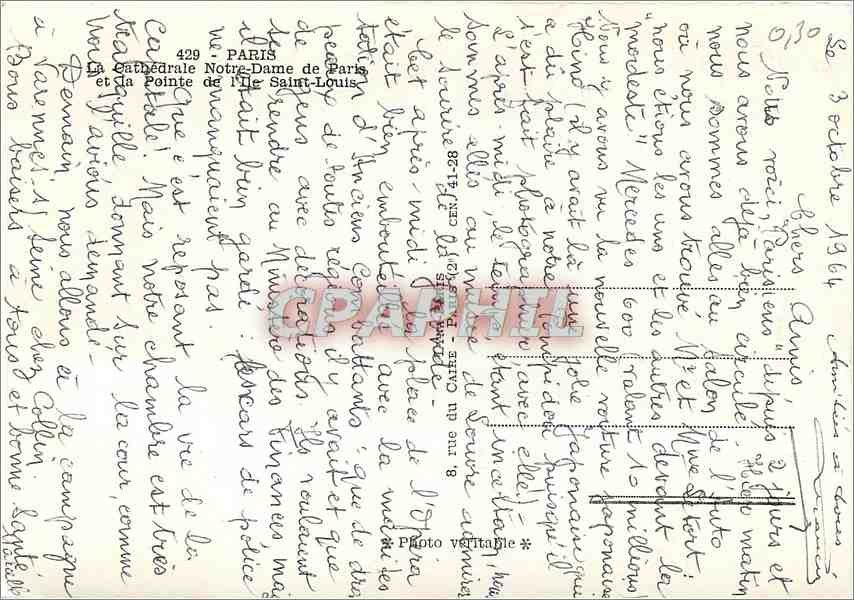 429 - PARIS
La Cathédrale Notre-Dame de Paris
et la Pointe de l'Ile Saint-Louis
8, rue du CAIRE - PARIS (2e) CEN 41-28
* Photo véritable *
CPAPHIL
0,30
Le 3 octobre 1964
Chers Amis
Nous voici, "Parisiens" depuis 2 jours et
nous avons déjà bien circulé. Hier matin
nous sommes allés au Salon de l'Auto
où nous avons trouvé Mr et Mme
nous étions les uns et les autres devant la
"modeste" Mercedes 600 valant 10 millions!
Nous y avons vu la nouvelle voiture japonaise
Hino (il y avait là une jolie japonaise qui
a dû plaire à notre Pompidou puisqu'il
s'est fait photographier avec elle!)
L'après-midi, le temps étant incertain, nous
sommes allés au musée du Louvre admirer
le sourire de la
Cet après-midi la place de l'Opéra
était bien embouteillée avec la manifes
tation d'Anciens Combattants: que de dra
peaux de toutes régions il y avait et que
de gens avec décorations. Ils voulaient
se rendre au Ministère des Finances, mais
il était bien gardé: les cars de police
ne manquaient pas
Que c'est reposant la vie de la
Capitale! Mais notre chambre est très
tranquille donnant sur la cour, comme
nous l'avions demandé -
Demain nous allons à la campagne
à Varennes s/ Seine chez Collin.
Bons baisers à tous et bonne santé
Amitiés à tous